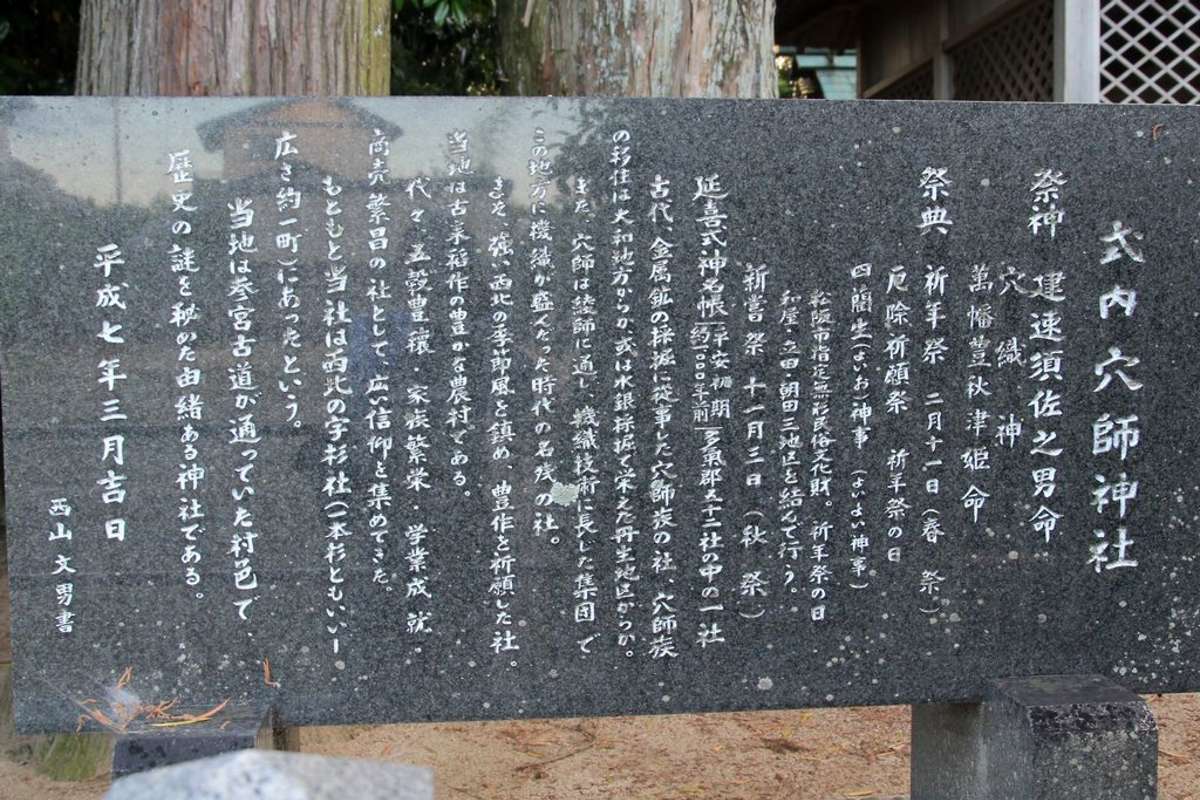 式内 穴師神社
祭神 建速須佐之男命
穴織神
萬幡豊秋津姫命
祭典 祈年祭 二月十一日(春祭)
厄除祈願祭 祈年祭の日
四籣生(よいお)神事 (よいよい神事)
松阪市指定無形民俗文化財。祈年祭の日
和屋・立田・朝田三地区を結んで行う。
新嘗祭 十一月三日(秋祭)
延喜式神名帳(平安初期 約一一〇〇年前)多気郡五十二社の中の一社
古代、金属鉱の採掘に従事した穴師族の社、穴師族
の移住は大和地方からか、或は水銀採掘で栄えた丹生地区からか。
また、穴師は綾師に通し、機織技術に長じた集団で
この地方に機織が盛んだった時代の名残の社。
また、強い西北の季節風を鎮め、豊作を祈願した社。
当地は古来稲作の豊かな農村である。
代々、五穀豊穣・家族繁栄・学業成就・
商売繁昌の社として、広い信仰を集めてきた。
もともと当社は西北の字杉社(一本杉ともいい—
広さ約一町)にあったという。
当地は参宮古道が通っていた村邑で、
歴史の謎を秘めた由緒ある神社である。
平成七年三月吉日
西山文男書